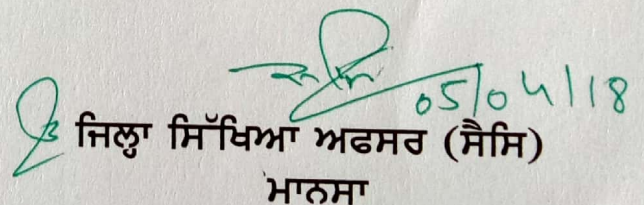 05/04/18
ਜਿਲ੍ਹਾ ਸਿੱਖਿਆ ਅਫਸਰ (ਸੈਸਿ)
ਮਾਨਸਾ